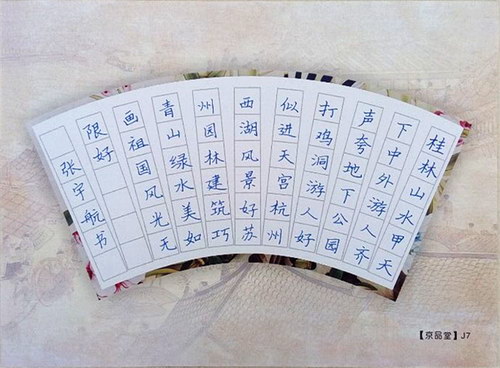 桂林山水甲天
下中外游人齐
声夸地下公园
打鸡洞游人好
似进天宫杭州
西湖风景好苏
州园林建筑巧
青山绿水美如
画祖国风光无
限好
张宇航书
【京品堂】J7